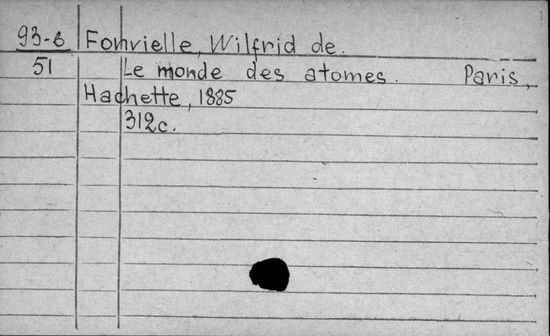 93-6 Fonvielle, Wilfrid de.
51 Le monde des atomes. Paris,
Hachette, 1885
312c.